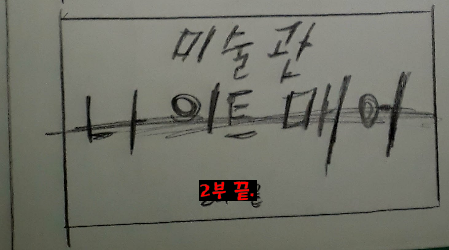 미술관
나이트 매어
2부 끝.